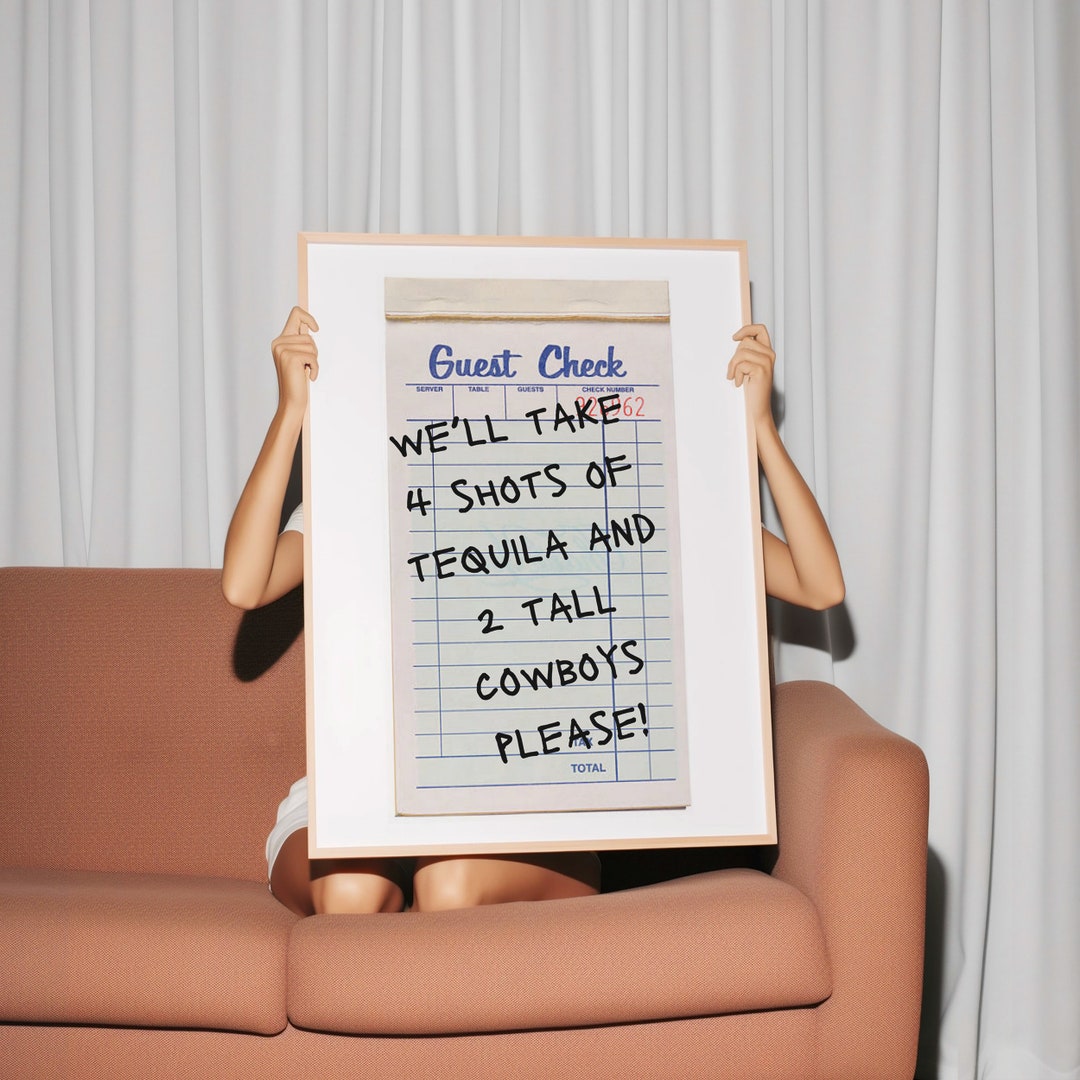 Guest Check
SERVER TABLE GUESTS CHECK NUMBER
WE'LL TAKE
4 SHOTS OF
TEQUILA AND
2 TALL
COWBOYS
PLEASE!
TAX
TOTAL